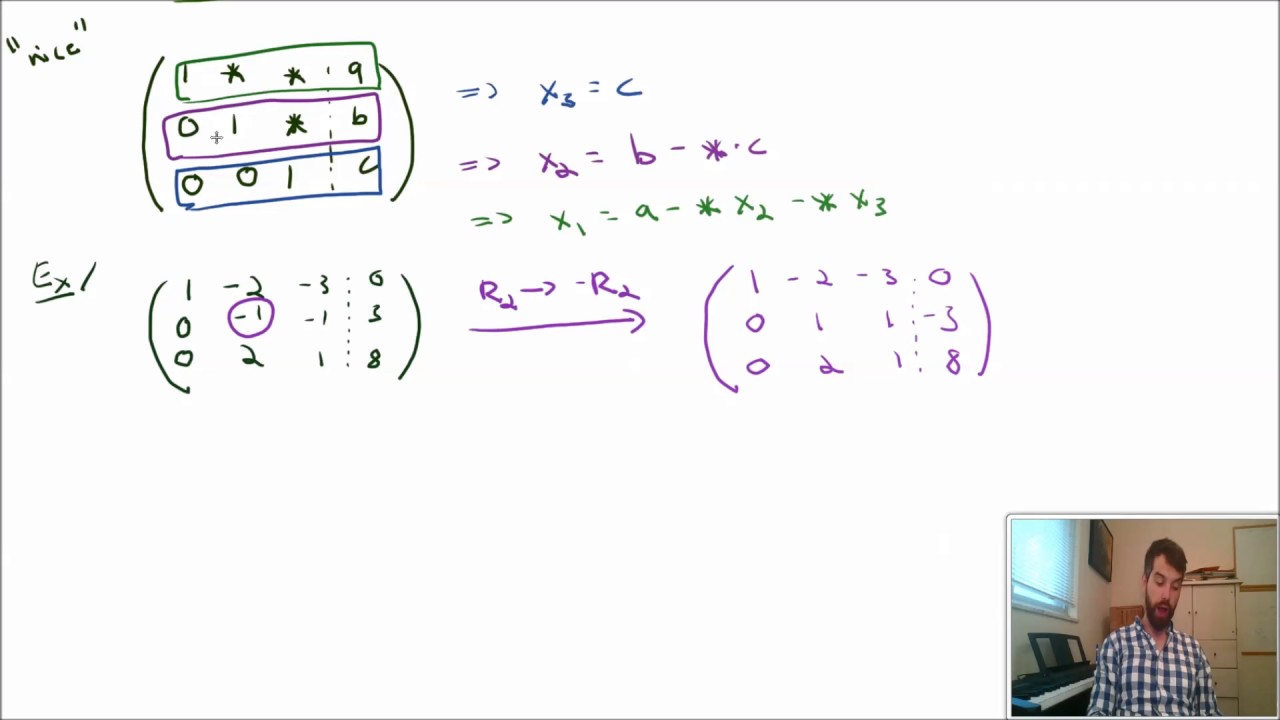 "nice"
1 * * a
0 1 * b
0 0 1 c
=> x₃ = c
=> x₂ = b - *·c
=> x₁ = a - * x₂ - * x₃
Ex/
1 -2 -3 0
0 -1 -1 3
0 2 1 8
R₂ → -R₂
1 -2 -3 0
0 1 1 -3
0 2 1 8